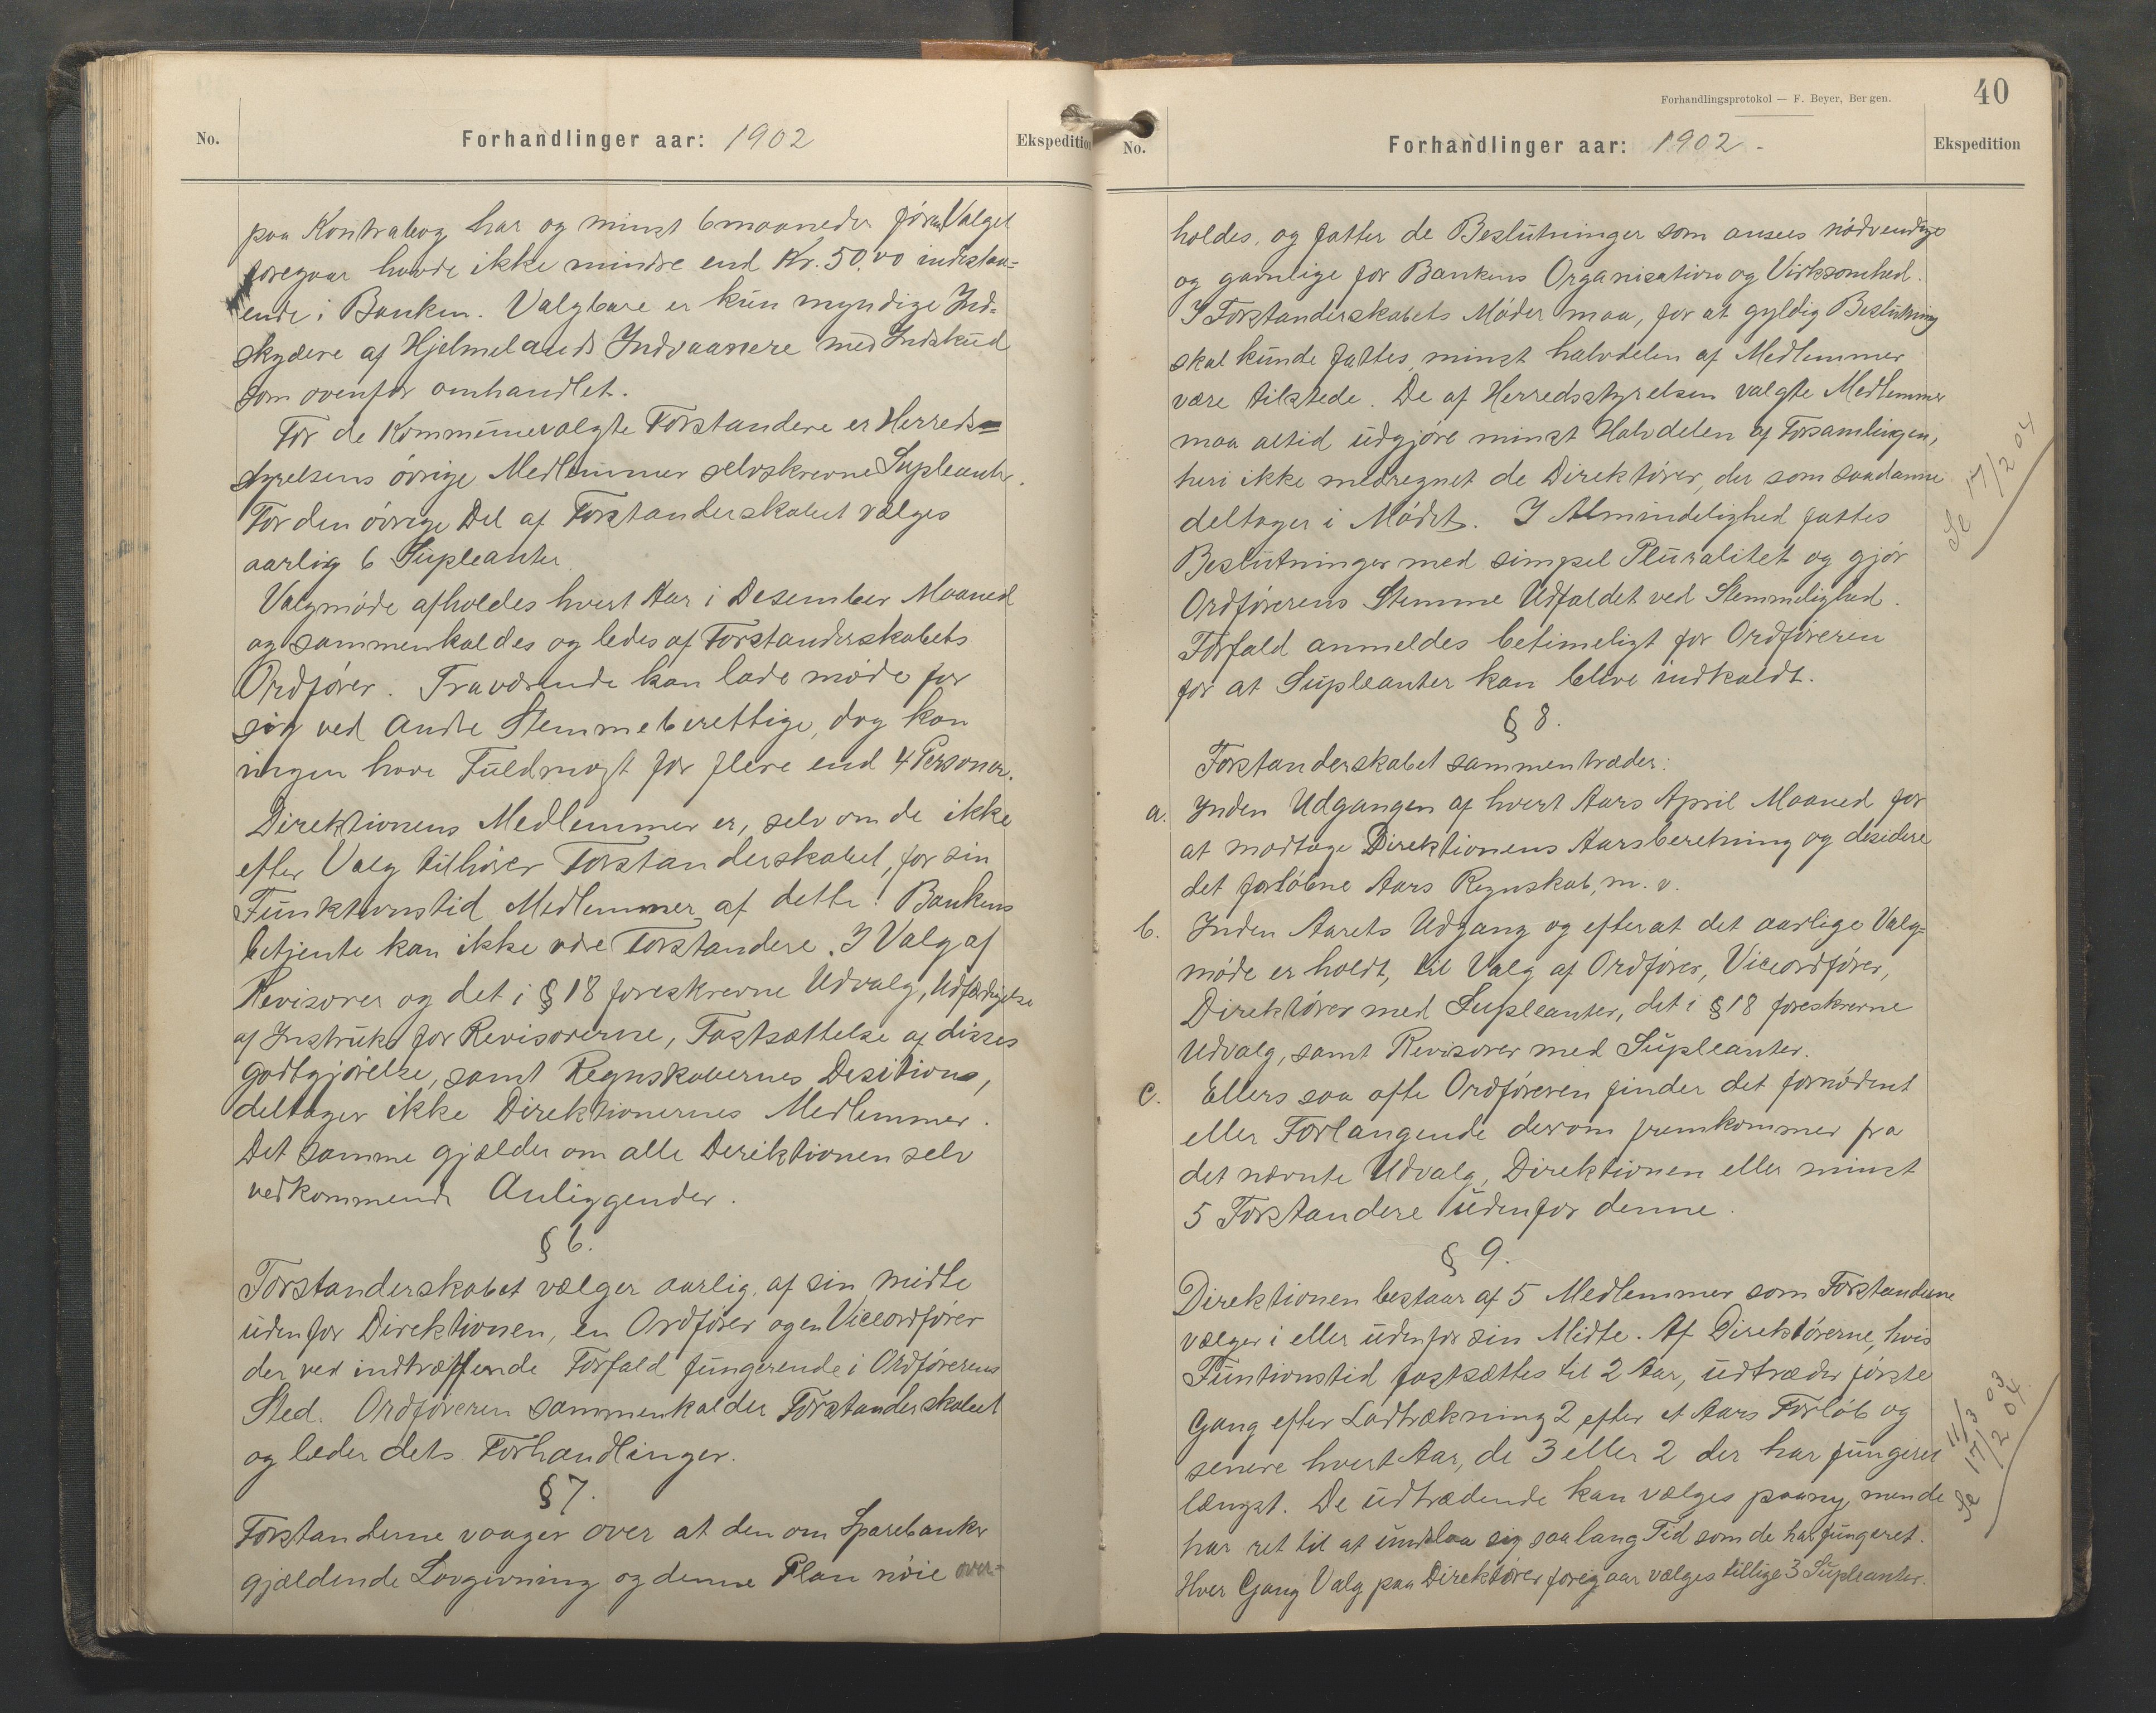 No.
Forhandlinger aar: 1902
Ekspedition
paa Kontrabog har og minst 6 maaneder förend Valget
foregaar havde ikke mindre end Kr. 50.00 indestaa-
ende i Banken. Valgbare er kun myndige Ind-
skydere af Hjelmelands Indvaanere med Indskud
som ovenfor omhandlet.
For de Kommunevalgte Forstandere er Herreds-
styrelsens övrige Medlemmer selvskrevne Supleanter.
For den övrige Del af Forstanderskabet vælges
aarlig 6 Supleanter
Valgmöde afholdes hvert Aar i Desember Maaned
og sammenkaldes og ledes af Forstanderskabets
Ordförer. Fraværende kan lade möde for
sig ved andre Stemmeberettige, dog kan
ingen have Fuldmagt for flere end 4 Personer.
Direktionens Medlemmer er, selv om de ikke
efter Valg tilhörer Forstanderskabet, for sin
Funktionstid Medlemmer af dette. Bankens
betjente kan ikke være Forstandere. I Valg af
Revisorer og det i § 18 foreskrevne Udvalg, Udfærdigelse
af Instruks for Revisorerne, Fastsættelse af disses
godtgjörelse, samt Regnskabernes Desitions,
deltager ikke Direktionernes Medlemmer.
Det samme gjælder om alle Dereiktionen selv
vedkommende Anliggender.
§ 6.
Forstanderskabet vælger aarlig af sin midte
udenfor Direktionen, en Ordförer og en Viceordförer
der ved indtræffende Forfald fungerende i Ordförerens
Sted. Ordföreren sammenkalder Forstanderskabet
og leder dets Forhandlinger.
§ 7.
Forstanderne vaager over at den om Sparebanker
gjældende Lovgivning og denne Plan nöie over-
Forhandlingsprotokol — F. Beyer, Bergen.
40
No.
Forhandlinger aar: 1902 -
Ekspedition
holdes, og fatter de Beslutninger som ansees nödvendige
og gavnlige for Bankens Organisation og Virksomhed.
I Forstanderskabets Möder maa, for at gyldig Beslutning
skal kunde fattes, minst halvdelen af Medlemmer
være tilstede. De af Herredsstyrelsen valgte Medlemmer
maa altid udgjöre minst Halvdelen af Forsamlingen,
heri ikke medregnet de Direktörer, der som saadanne
deltager i Mödet. I Almindelighed fattes
Beslutninger med simpel Pluralitet og gjör
Ordförerens Stemme Udfaldet ved Stemmelighed.
Forfald anmeldes betimeligt for Ordföreren
for at Supleanter kan blive indkaldt.
Se 17/2 04
§ 8.
Forstanderskabet sammentræder:
a. Inden Udgangen af hvert Aars April Maaned for
at modtage Direktionens Aarsberetning og desidere
det forlöbne Aars Regnskab, m. v.
b. Inden Aarets Udgang og efterat det aarlige Valg-
möde er holdt, til Valg af Ordförer, Viceordförer,
Direktörer med Supleanter, det i § 18 foreskrevne
Udvalg, samt Revisorer med Supleanter.
c. Ellers saa ofte Ordföreren finder det fornödent
eller Forlangende derom fremkommer fra
det nævnte Udvalg, Direktionen eller minst
5 Forstandere udenfor denne.
§ 9.
Direktionen bestaar af 5 Medlemmer som Forstanderne
vælger i eller udenfor sin Midte. Af Direktörerne, hvis
Funtionstid fastsættes til 2 Aar, udtræder förste
Gang efter Lodtrækning 2 efter et Aars Forlöb og
senere hvert Aar, de 3 eller 2 der har fungeret
længst. De udtrædende kan vælges paany, menide
har ret til at undslaa sig saa lang Tid som de har fungeret.
Hver Gang Valg paa Direktörer foregaar vælges tillige 3 Supleanter.
Se 11/3 03
17/2 04